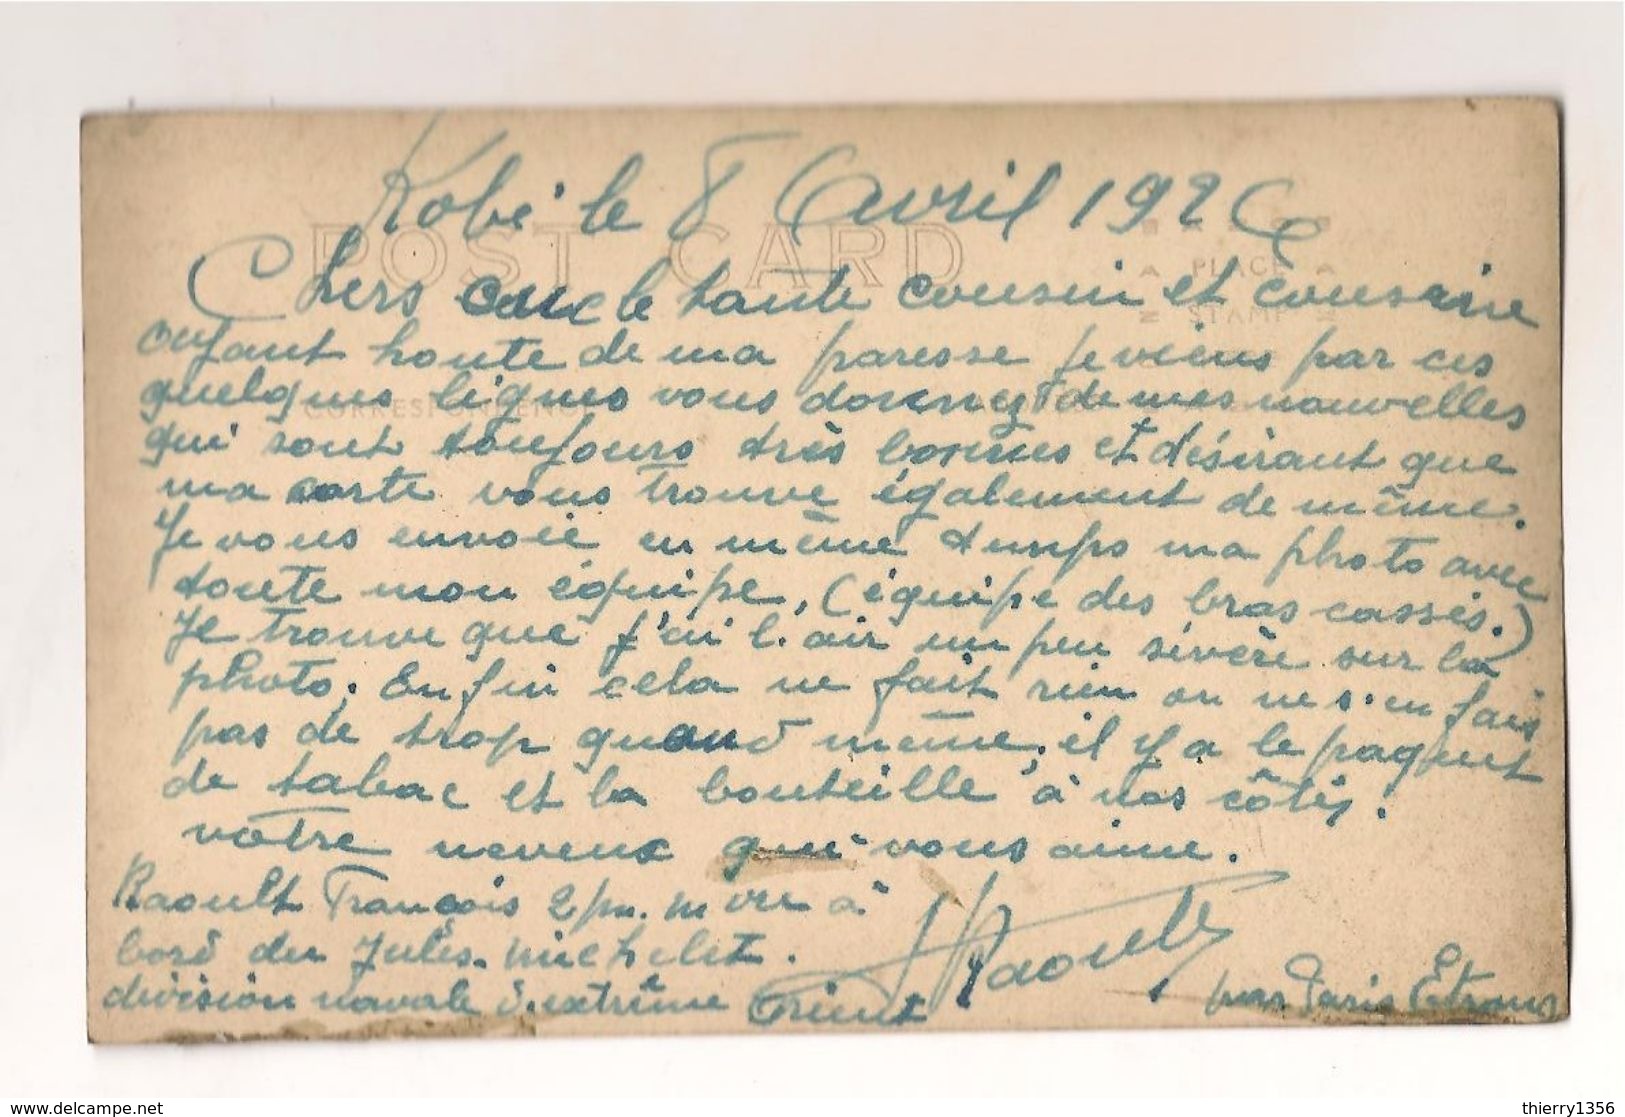 Kobé le 8 Avril 1926
POST CARD
PLACE
STAMP
CORRESPONDENCE
Chers oncle tante cousin et cousine
ayant honte de ma paresse je viens par ces
quelques lignes vous donnez de mes nouvelles
qui sont toujours très bonnes et désirant que
ma carte vous trouve également de même.
Je vous envoie en même temps ma photo avec
toute mon équipe, (équipe des bras cassés.)
Je trouve que j'ai l'air un peu sévère sur la
photo. Enfin cela ne fait rien on ne s'en fais
pas de trop quand même, il y a le paquet
de tabac et la bouteille à nos côtés.
votre neveux qui vous aime.
Raoult François à
bord du Jules. Michelet.
division navale d'extrême Orient
Raoult
par Paris Etrang
delcampe.net
thierry1356